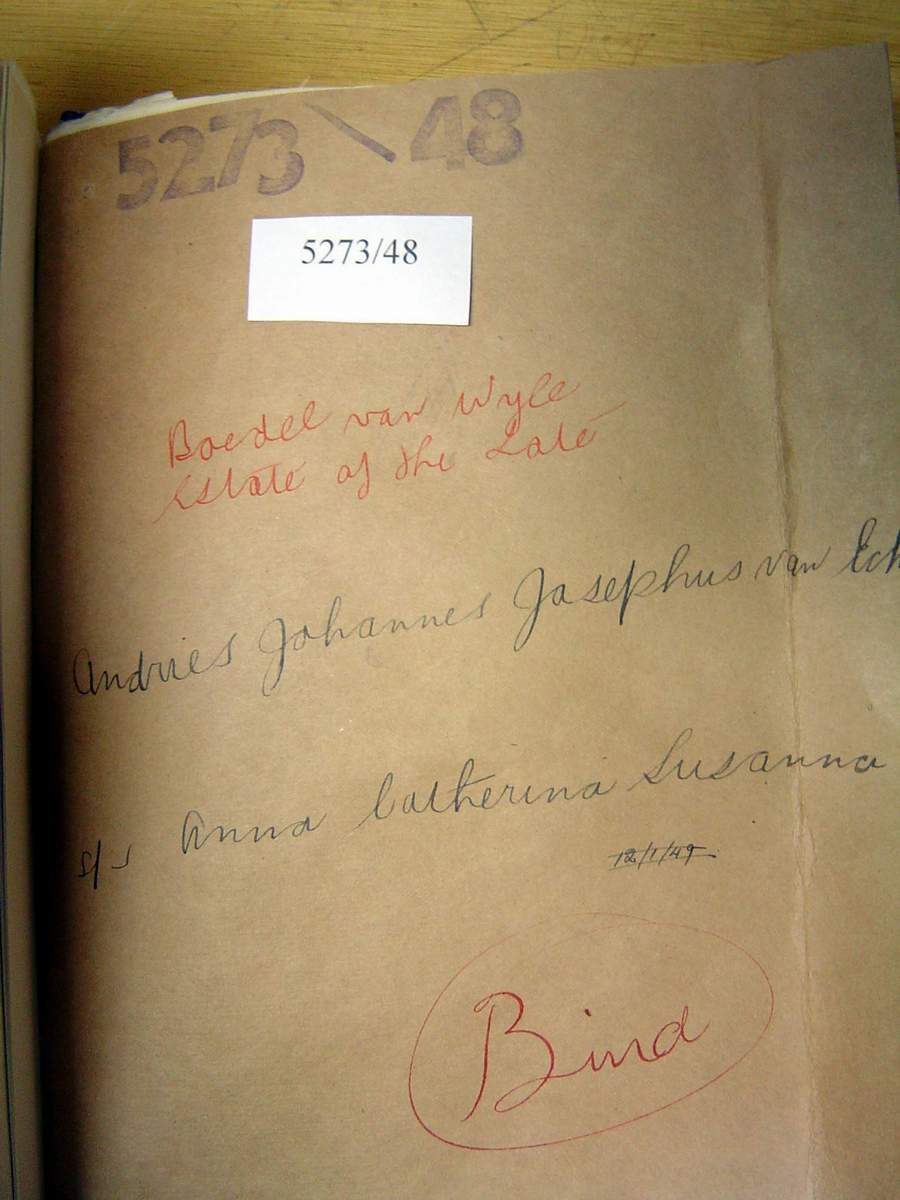 5273 \ 48
5273/48
Boedel van Wyle
Estate of the Late
Andries Johannes Josephus van Eck
s/s Anna Catherina Susanna
12/1/49
Bind